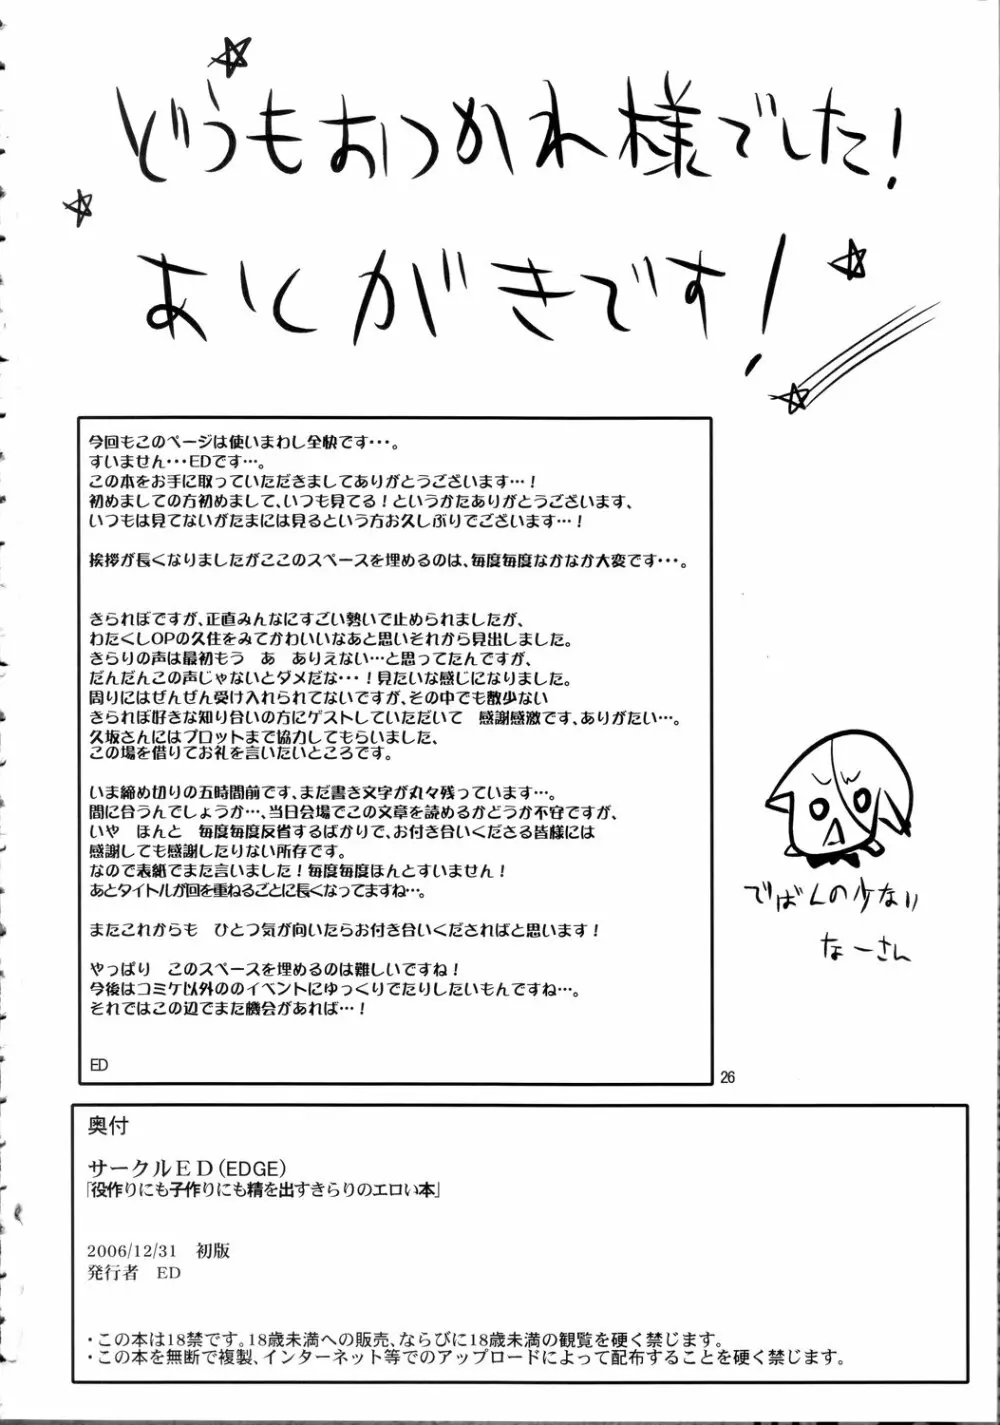 どうもおつかれ様でした!
あとがきです!
今回もこのページは使いまわし全快です・・・。
すいません・・・EDです…。
この本をお手に取っていただきましてありがとうございます…！
初めましての方初めまして、いつも見てる！というかたありがとうございます、
いつもは見てないがたまには見るという方お久しぶりでございます…！
挨拶が長くなりましたがここのスペースを埋めるのは、毎度毎度なかなか大変です・・・。
きられぼですが、正直みんなにすごい勢いで止められましたが、
わたくしOPの久住をみてかわいいなあと思いそれから見出しました。
きらりの声は最初もう　あ　ありえない…と思ってたんですが、
だんだんこの声じゃないとダメだな・・・！見たいな感じになりました。
周りにはぜんぜん受け入れられてないですが、その中でも数少ない
きられぼ好きな知り合いの方にゲストしていただいて　感謝感激です、ありがたい…。
久坂さんにはプロットまで協力してもらいました、
この場を借りてお礼を言いたいところです。
いま締め切りの五時間前です、まだ書き文字が丸々残っています…。
間に合うんでしょうか…、当日会場でこの文章を読めるかどうか不安ですが、
いや　ほんと　毎度毎度反省するばかりで、お付き合いくださる皆様には
感謝しても感謝したりない所存です。
なので表紙でまた言いました！毎度毎度ほんとすいません！
あとタイトルが回を重ねるごとに長くなってますね…。
またこれからも　ひとつ気が向いたらお付き合いくださればと思います！
やっぱり　このスペースを埋めるのは難しいですね！
今後はコミケ以外ののイベントにゆっくりでたりしたいもんですね…。
それではこの辺でまた機会があれば…！
ED
でばんの少ない
なーさん
26
奥付
サークルＥＤ（EDGE）
「役作りにも子作りにも精を出すきらりのエロい本」
2006/12/31　初版
発行者　ED
・この本は18禁です。18歳未満への販売、ならびに18歳未満の観覧を硬く禁じます。
・この本を無断で複製、インターネット等でのアップロードによって配布することを硬く禁じます。